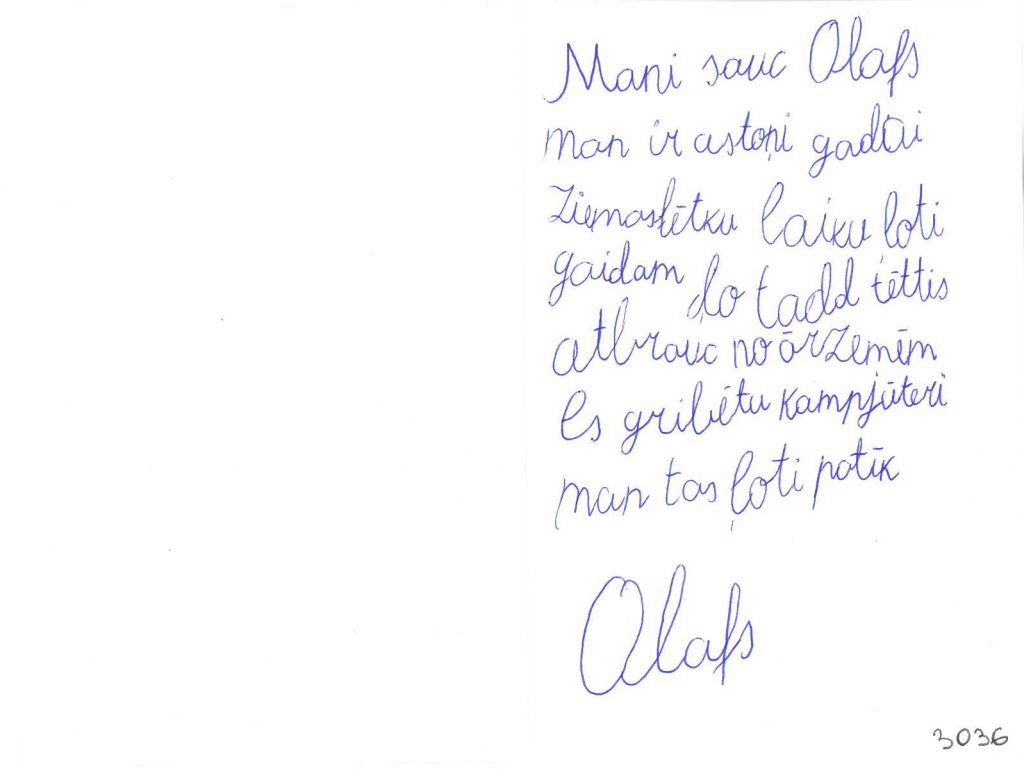 Mani sauc Olafs
man ir astoņi gadai
Ziemaslētku laiku ļoti
gaidam ļo tadd tēttis
atbrauc no ārzemēm
Es gribētu kampjūteri
man tas ļoti patīk
Olafs
3036